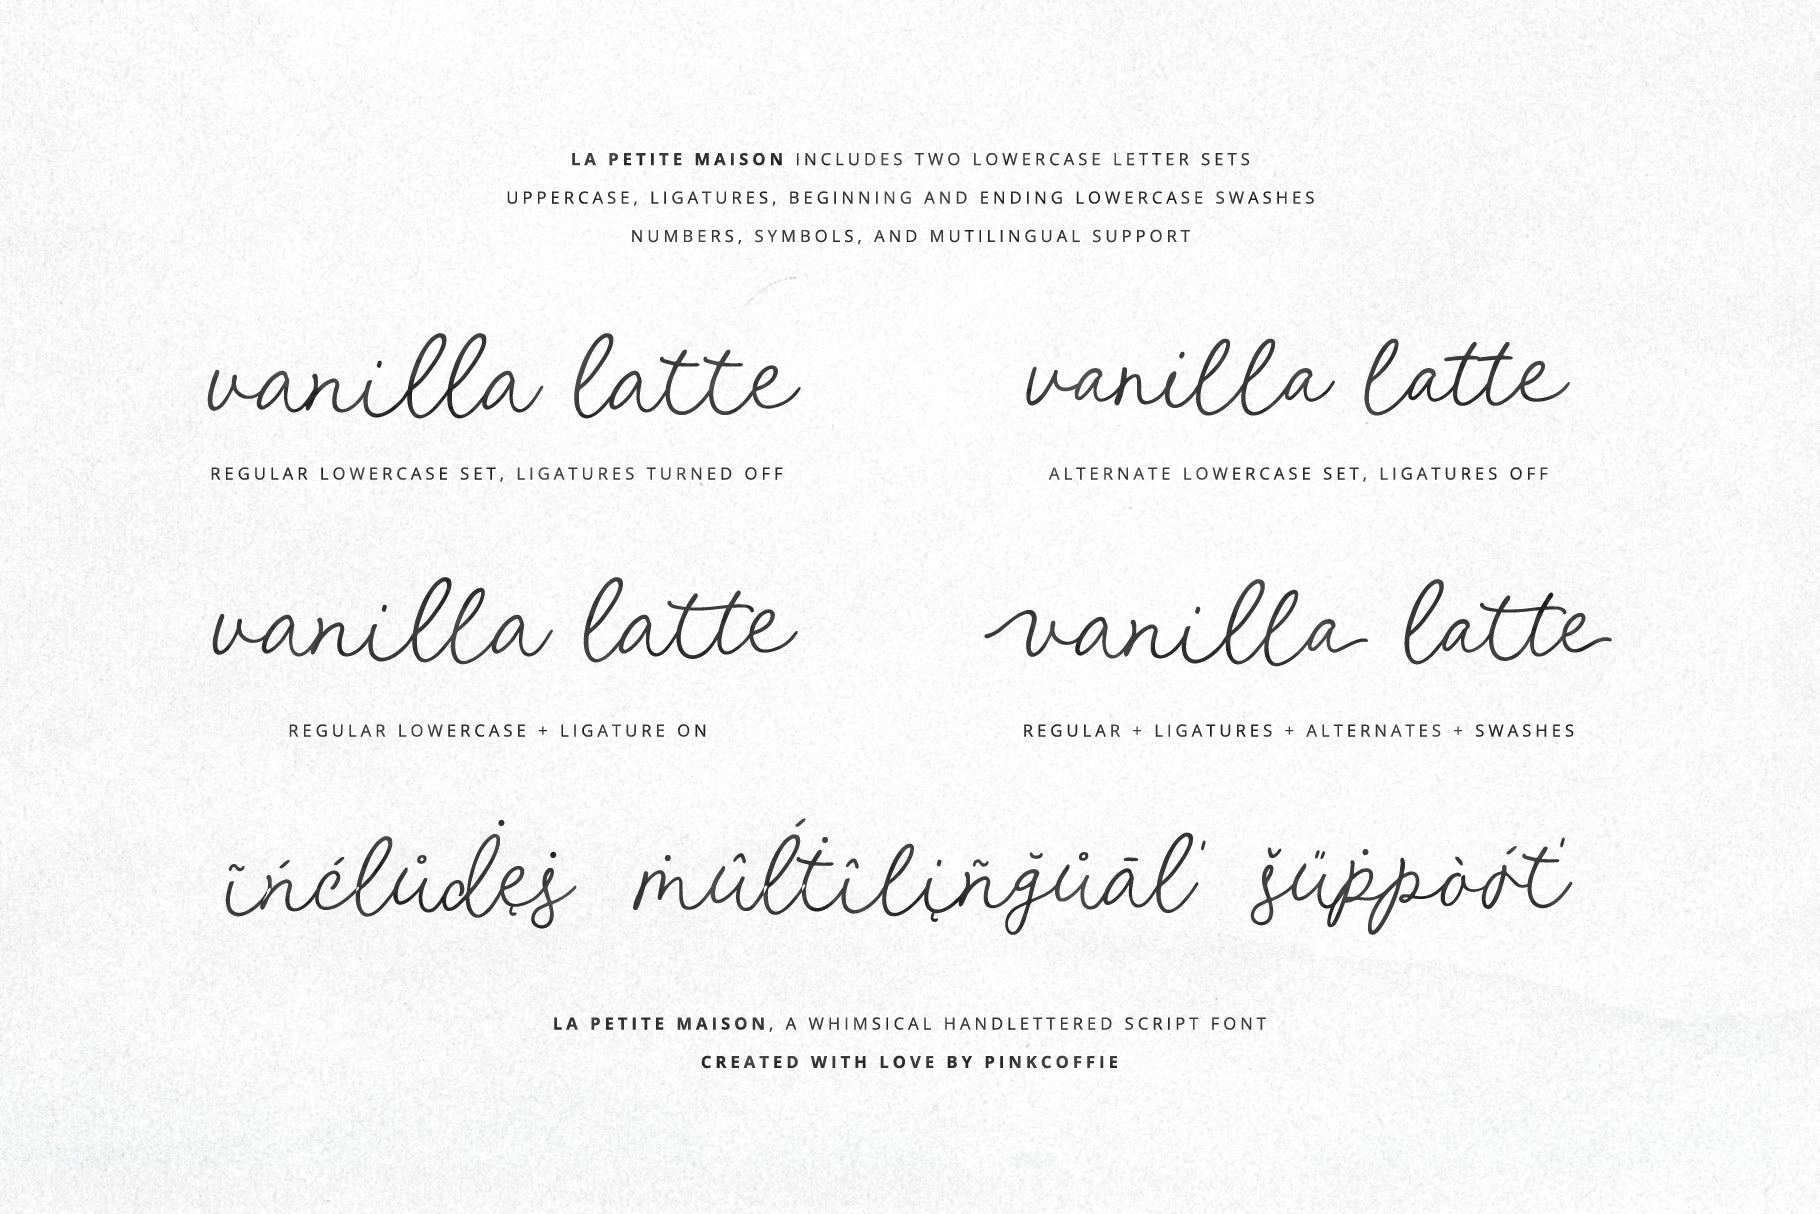 LA PETITE MAISON INCLUDES TWO LOWERCASE LETTER SETS
UPPERCASE, LIGATURES, BEGINNING AND ENDING LOWERCASE SWASHES
NUMBERS, SYMBOLS, AND MUTILINGUAL SUPPORT
vanilla latte
REGULAR LOWERCASE SET, LIGATURES TURNED OFF
vanilla latte
ALTERNATE LOWERCASE SET, LIGATURES OFF
vanilla latte
REGULAR LOWERCASE + LIGATURE ON
vanilla latte
REGULAR + LIGATURES + ALTERNATES + SWASHES
ĩńćlůdęṡ ṁûĺṫîlįñğůāľ šűṗpòóť
LA PETITE MAISON, A WHIMSICAL HANDLETTERED SCRIPT FONT
CREATED WITH LOVE BY PINKCOFFIE